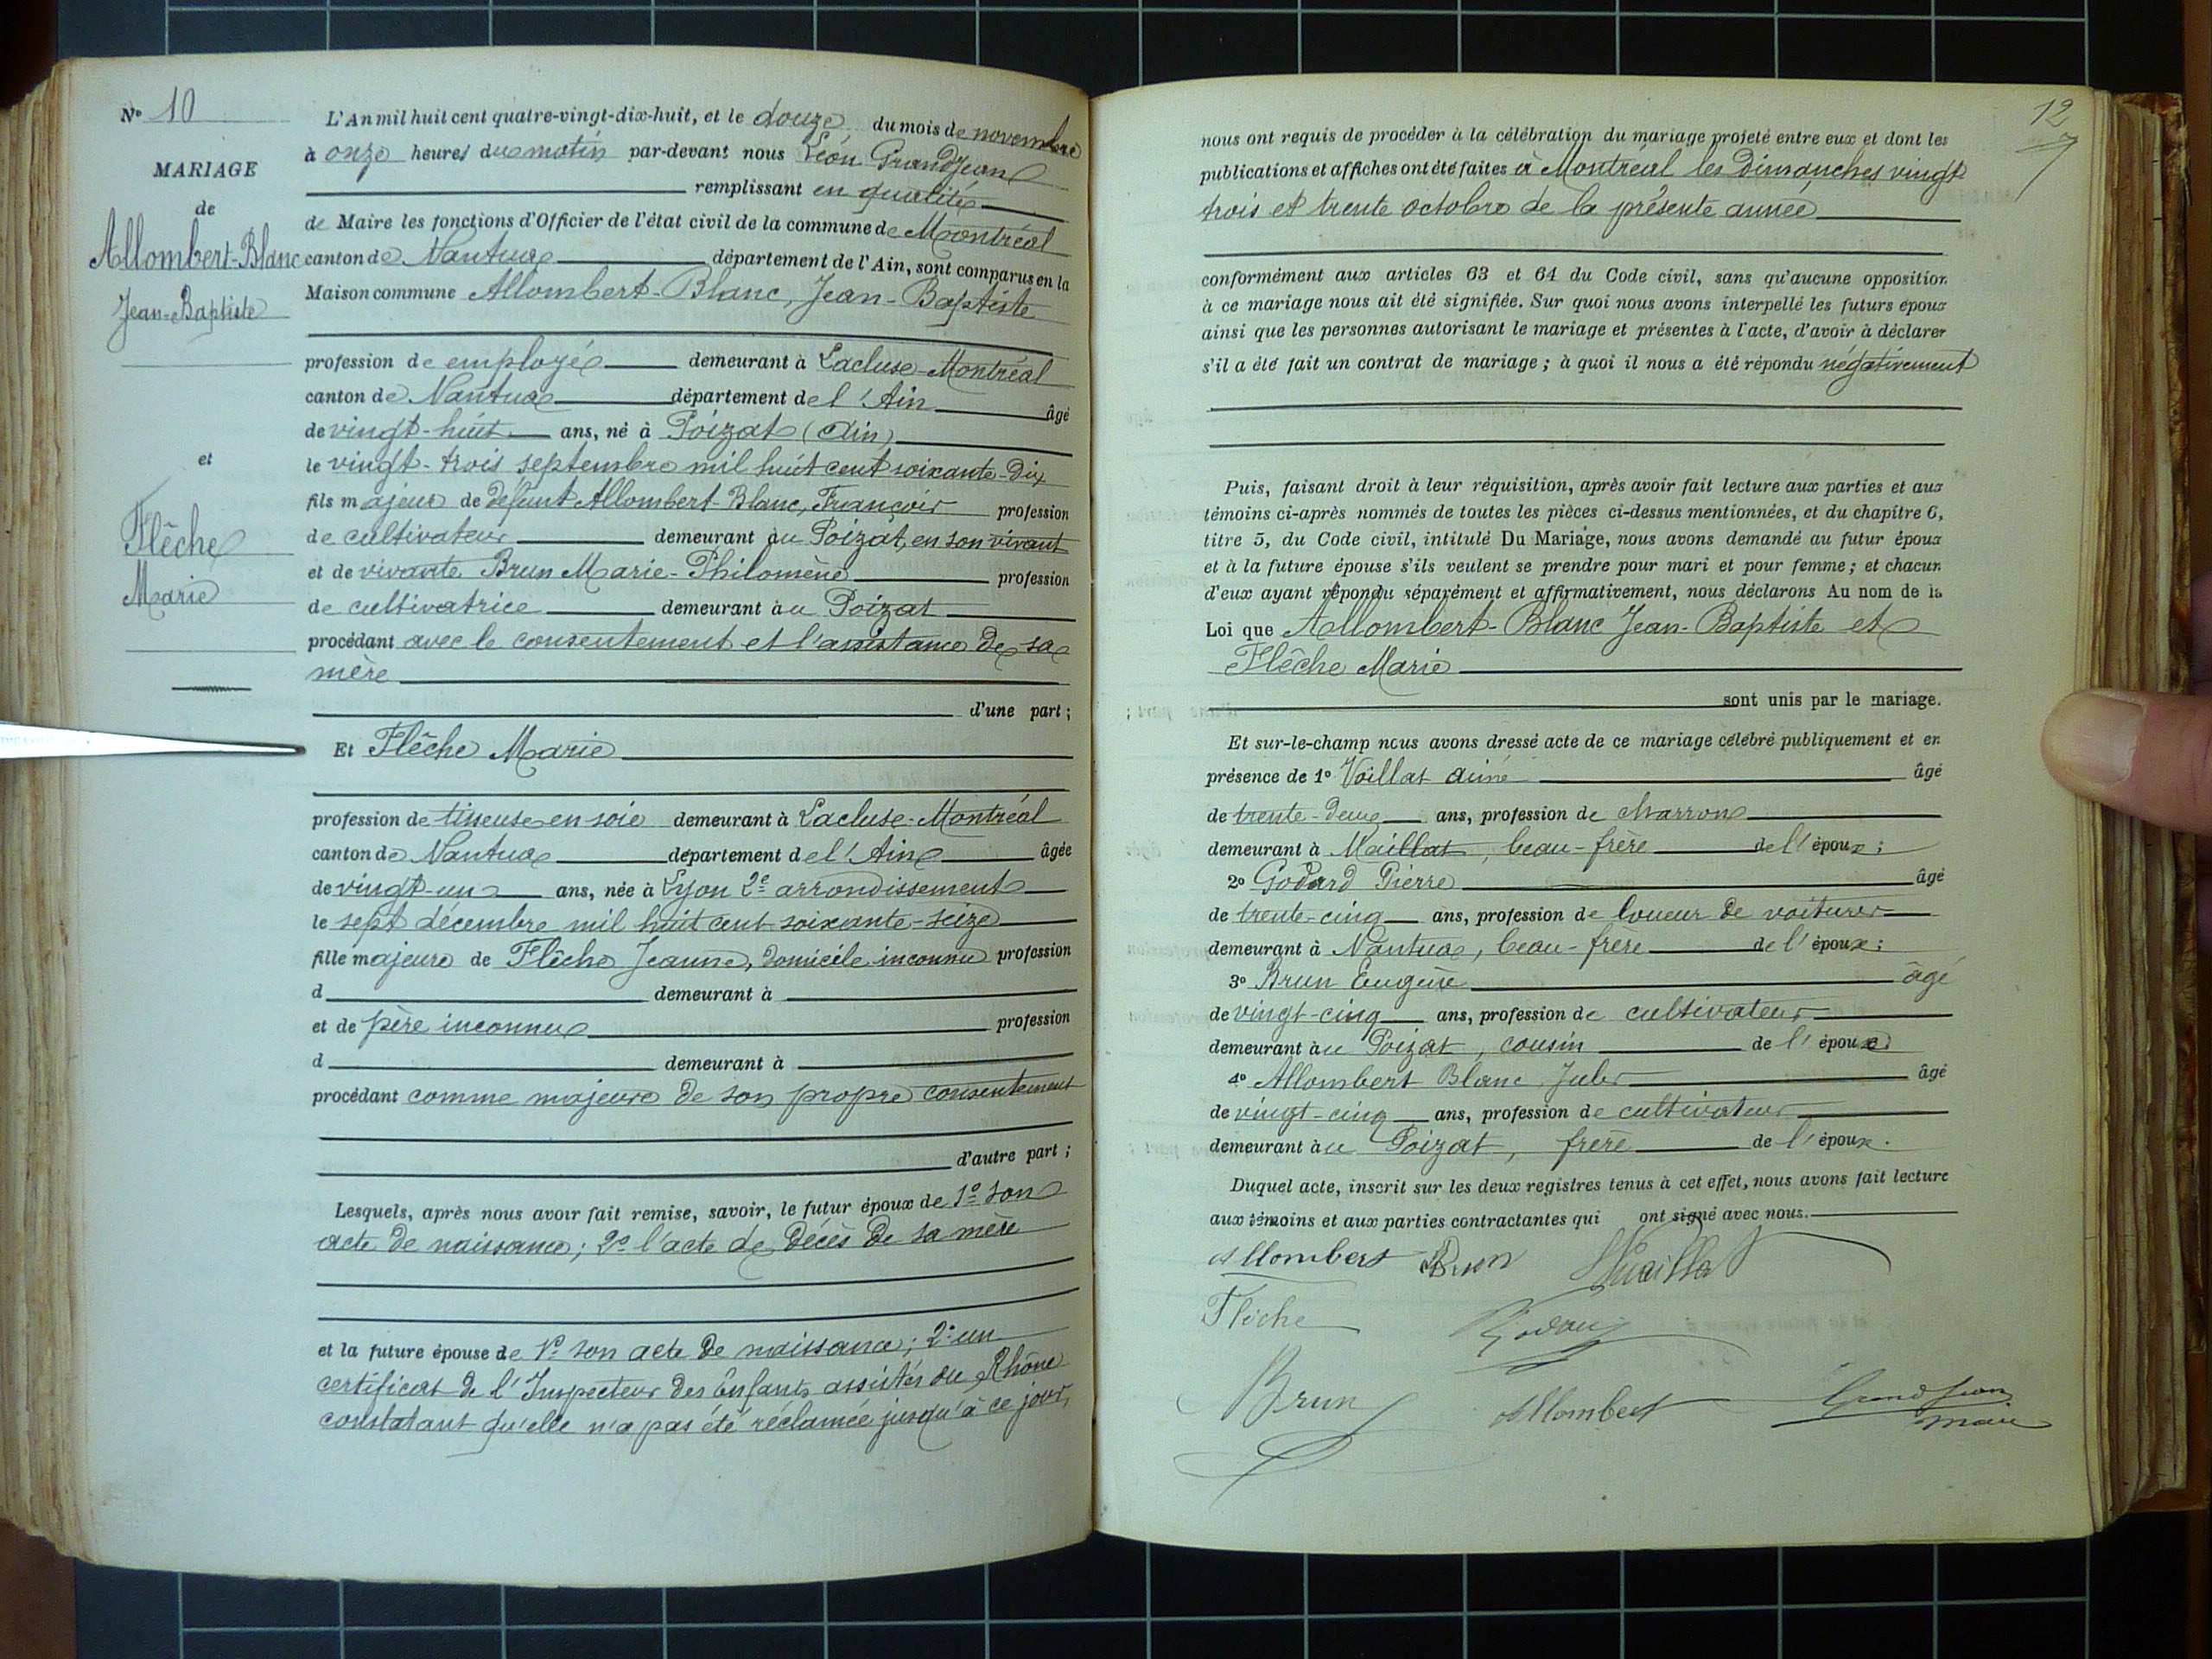 N° 10
MARIAGE
de
Allombert-Blanc
Jean-Baptiste
et
Flêche
Marie
L'An mil huit cent quatre-vingt-dix-huit, et le douze du mois de novembre
à onze heures du matin par-devant nous Léon Grandjean
remplissant en qualité
de Maire les fonctions d'Officier de l'état civil de la commune de Montréal
canton de Nantua département de l'Ain, sont comparus en la
Maison commune Allombert-Blanc, Jean-Baptiste
profession de employé demeurant à Lacluse-Montréal
canton de Nantua département de l'Ain âgé
de vingt-huit ans, né à Poizat (Ain)
le vingt-trois septembre mil huit cent soixante-dix
fils majeur de défunt Allombert-Blanc, François profession
de cultivateur demeurant au Poizat, en son vivant
et de vivante Brun Marie-Philomène profession
de cultivatrice demeurant au Poizat
procédant avec le consentement et l'assistance de sa
mère
d'une part ;
Et Flêche Marie
profession de tisseuse en soie demeurant à Lacluse-Montréal
canton de Nantua département de l'Ain âgée
de vingt-un ans, née à Lyon 2e arrondissement
le sept décembre mil huit cent soixante-seize
fille majeure de Flêche Jeanne, domicile inconnu profession
d demeurant à
et de père inconnu profession
d demeurant à
procédant comme majeure de son propre consentement
d'autre part ;
Lesquels, après nous avoir fait remise, savoir, le futur époux de 1° son
acte de naissance ; 2° l'acte de décès de sa mère
et la future épouse de 1° son acte de naissance ; 2° un
certificat de l'Inspecteur des Enfants assistés du Rhône
constatant qu'elle n'a pas été réclamée jusqu'à ce jour,
12
nous ont requis de procéder à la célébration du mariage projeté entre eux et dont les
publications et affiches ont été faites à Montréal les Dimanches vingt
trois et trente octobre de la présente année
conformément aux articles 63 et 64 du Code civil, sans qu'aucune opposition
à ce mariage nous ait été signifiée. Sur quoi nous avons interpellé les futurs époux
ainsi que les personnes autorisant le mariage et présentes à l'acte, d'avoir à déclarer
s'il a été fait un contrat de mariage ; à quoi il nous a été répondu négativement
Puis, faisant droit à leur réquisition, après avoir fait lecture aux parties et aux
témoins ci-après nommés de toutes les pièces ci-dessus mentionnées, et du chapitre 6,
titre 5, du Code civil, intitulé Du Mariage, nous avons demandé au futur époux
et à la future épouse s'ils veulent se prendre pour mari et pour femme ; et chacun
d'eux ayant répondu séparément et affirmativement, nous déclarons Au nom de la
Loi que Allombert-Blanc Jean-Baptiste et
Flêche Marie
sont unis par le mariage.
Et sur-le-champ nous avons dressé acte de ce mariage célébré publiquement et en
présence de 1° Vaillat aimé âgé
de trente-deux ans, profession de charron
demeurant à Maillat, beau-frère de l'époux ;
2° Godard Pierre âgé
de trente-cinq ans, profession de loueur de voitures
demeurant à Nantua, beau-frère de l'époux ;
3° Brun Eugène âgé
de vingt-cinq ans, profession de cultivateur
demeurant au Poizat, cousin de l'époux
4° Allombert Blanc Jules âgé
de vingt-cinq ans, profession de cultivateur
demeurant au Poizat, frère de l'époux.
Duquel acte, inscrit sur les deux registres tenus à cet effet, nous avons fait lecture
aux témoins et aux parties contractantes qui ont signé avec nous.
Allombert Brun Vuaillat
Flèche Godard
Brun Allombert Grandjean
maire